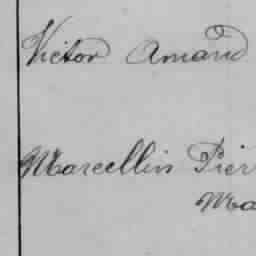 Victor Amand
Marcellin Pier
Ma